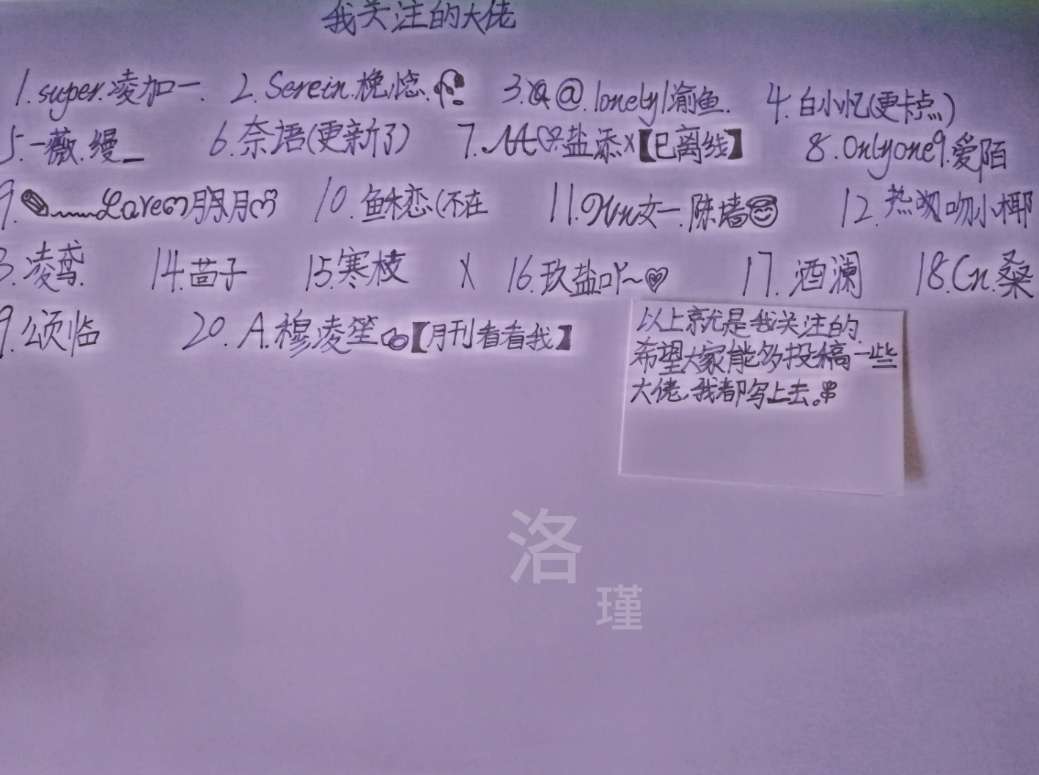 我关注的大佬
1.super.凌加一. 2.Serein.桅惦. 3. @.lonely/渝鱼. 4.白小忆(更卡点)
5.一薇.缦_ 6.奈语(更新了) 7. 盐添x【已离线】 8.Onlyone9.爱陌
9. Love 月月 10.鱼禾恋(不在 11. 女一.陈墙 12.热吻小椰
3.凌鸢. 14.茴子 15.寒枝 X 16.玖盐吖~ 17.酒澜 18.Cn.桑
9.颂临 20.A.穆凌笙【月刊看看我】
以上就是我关注的.
希望大家能多投稿一些
大佬,我都写上去。
洛
瑾